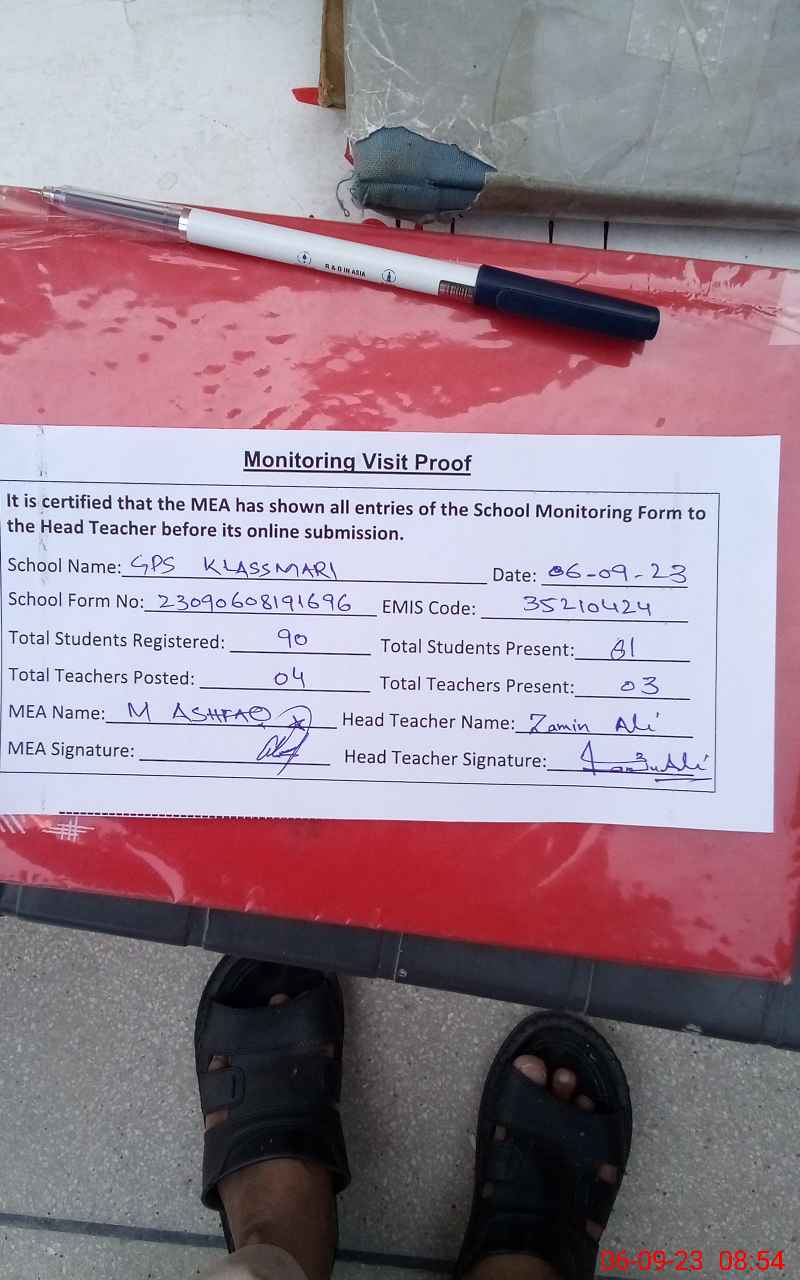 R & D IN ASIA
Monitoring Visit Proof
It is certified that the MEA has shown all entries of the School Monitoring Form to
the Head Teacher before its online submission.
School Name: GPS KLASSMARI Date: 06-09-23
School Form No: 23090608191696 EMIS Code: 35210424
Total Students Registered: 90 Total Students Present: 81
Total Teachers Posted: 04 Total Teachers Present: 03
MEA Name: M ASHFAQ Head Teacher Name: Zamin Ali
MEA Signature: Head Teacher Signature: Zamin Ali
06-09-23 08:54